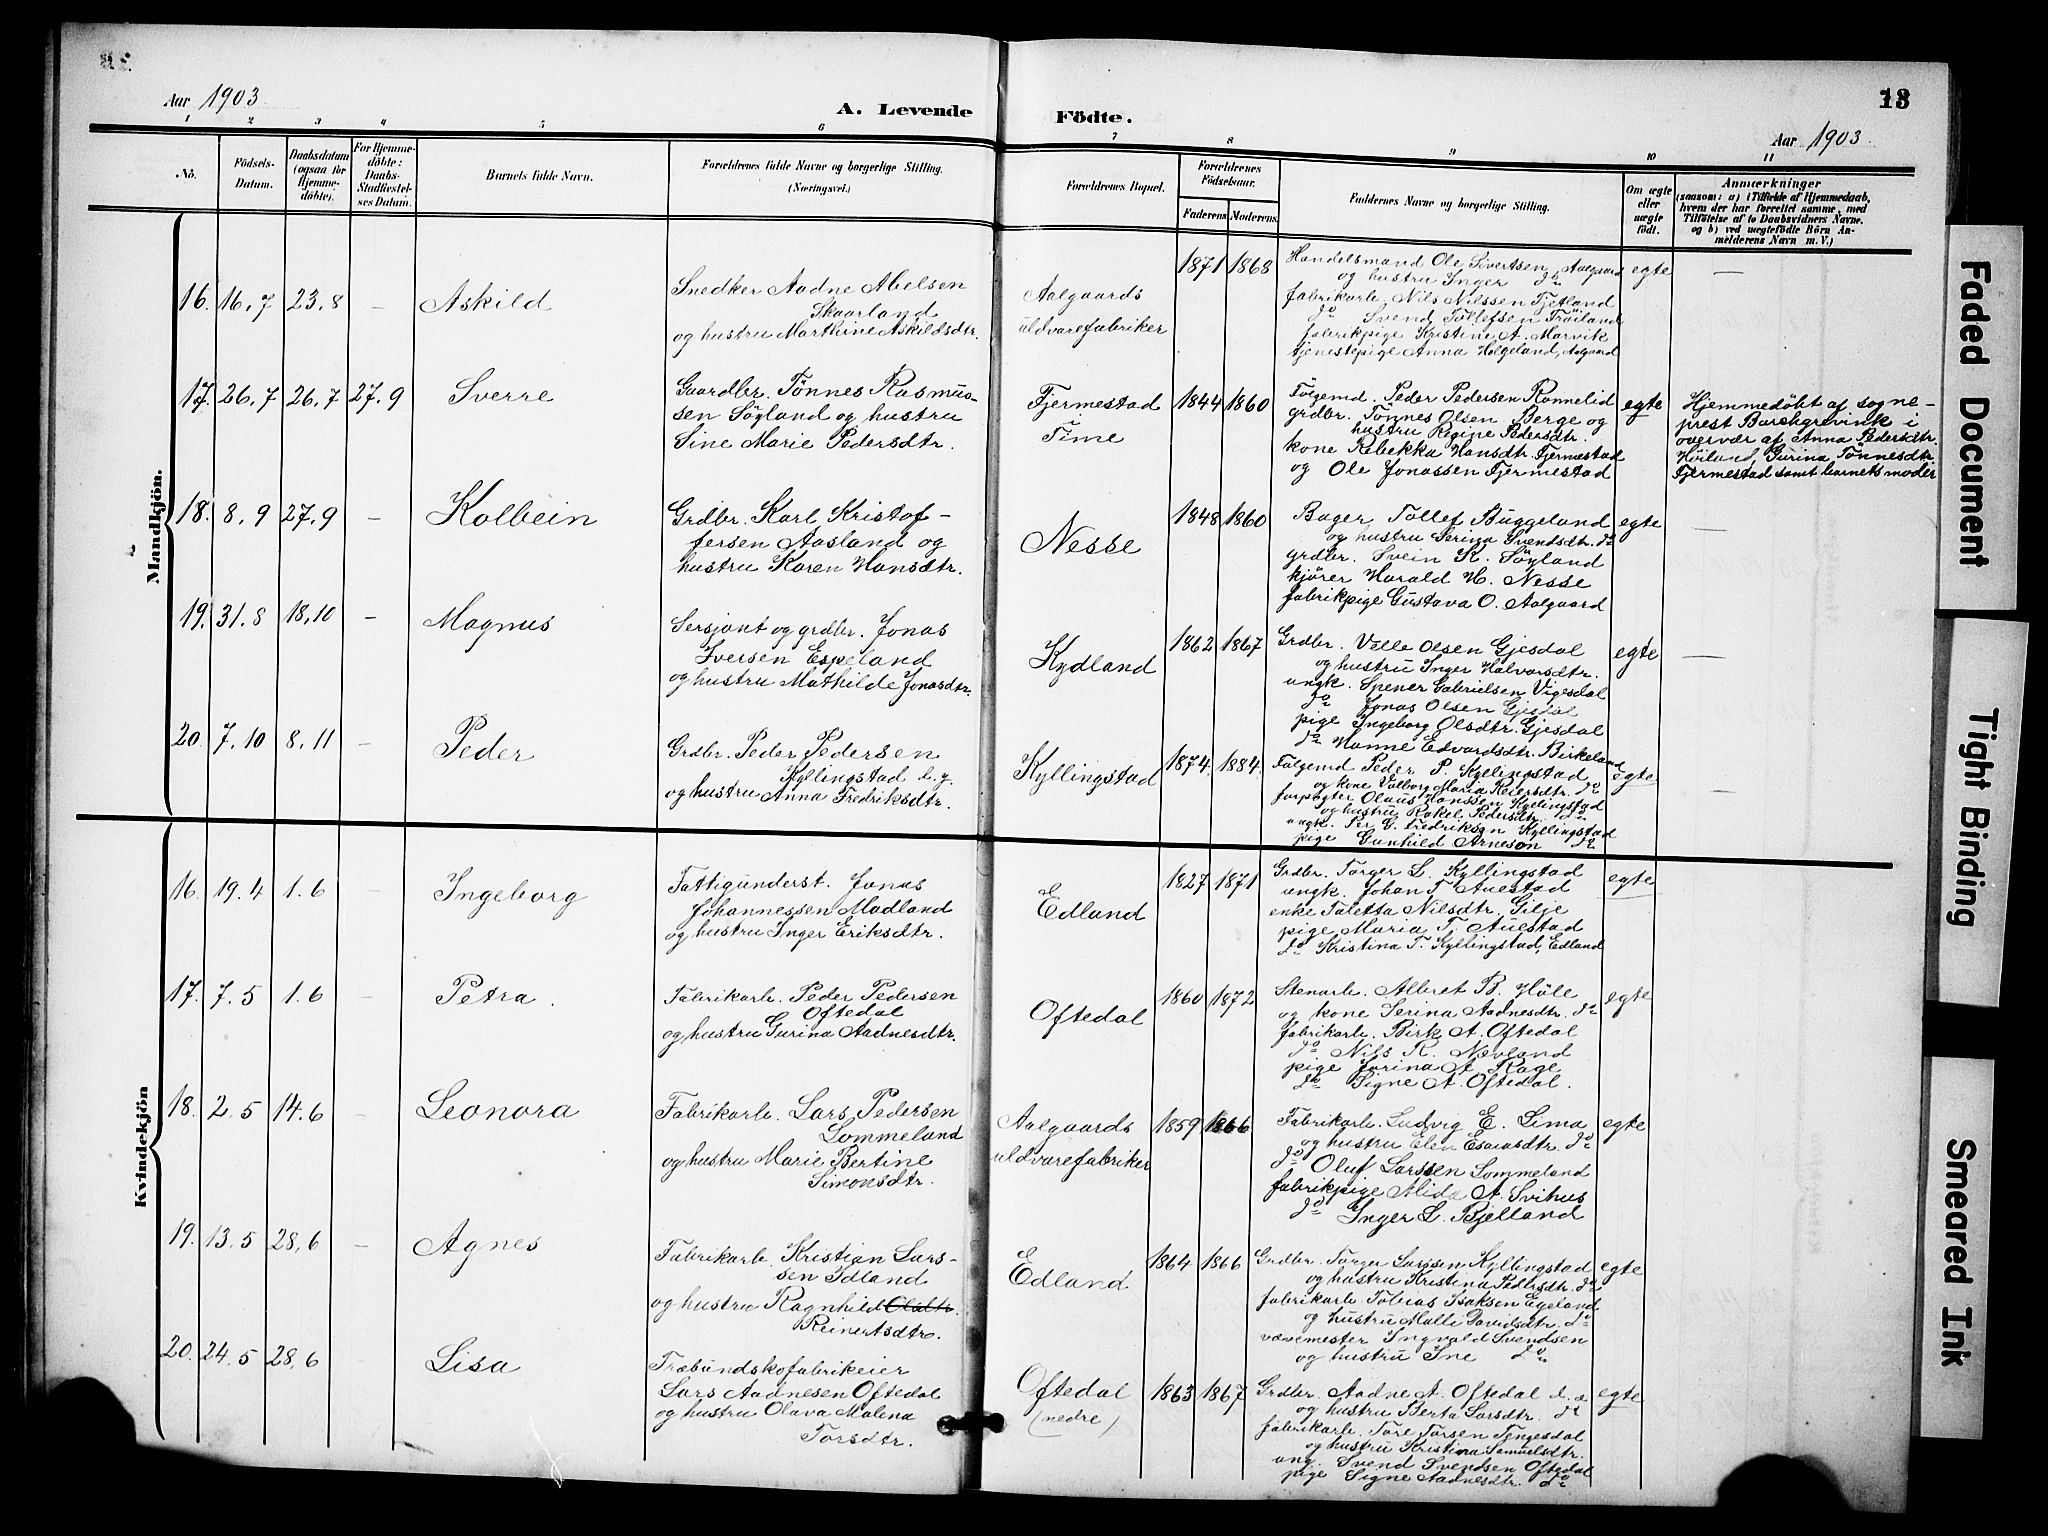 Aar 1903
A. Levende
Födte.
13
Aar 1903.
1
2
3
4
5
6
7
8
9
10
11
No.
Födsels-
Datum.
Daabsdatum
(ogsaa for
Hjemme-
döbte).
For Hjemme-
döbte:
Daabs-
Stadfæstel-
ses Datum.
Barnets fulde Navn.
Forældrenes fulde Navne og borgerlige Stilling.
(Næringsvei.)
Forældrenes Bopæl.
Forældrenes
Födselsaar.
Faderens.
Moderens.
Faddernes Navne og borgerlige Stilling.
Om ægte
eller
uægte
födt.
Anmærkninger
(saasom: a) i Tilfælde af Hjemmedaab,
hvem der har forrettet samme, med
Tilföielse af to Daabsvidners Navne,
og b) ved uægtefödte Börn An-
melderens Navn m. V.)
Mandkjön.
16. 16,7 23,8 – Askild
Snedker Aadne Abelsen
Skaarland
og hustru Marthine Askildsdtr.
Aalgaards
uldvarefabriker
1871 1868
Handelsmand Ole Sivertsen, Aalgaard
og hustru Inger do
fabrikarb. Nils Nilssen Fjetland
do Svend Tollefsen Tröiland
fabrikpige Kristine A. Marvik
tjenestepige Anna Helgeland, Aalgaard
egte —
17. 26,7 26,7 27,9 Sverre
Gaardbr. Tönnes Rasmus-
sen Söyland og hustru
Sine Marie Pedersdtr.
Fjermestad
Time
1844 1860
Fölgemd. Peder Pedersen Ronnelid
grdbr. Tönnes Olsen Berge og
hustru Regine Pedersdtr.
kone Rebekka Hansdtr. Fjermestad
og Ole Jonassen Fjermestad
egte
Hjemmedöbt af sogne-
prest Barchgrevink i
overvær af Anna Pedersdtr.
Höiland, Gurina Tönnesdtr.
Fjermestad samt barnets moder
18. 8,9 27,9 – Kolbein
Grdbr. Karl Kristof-
fersen Aasland og
hustru Karen Hansdtr.
Nesse
1848 1860
Bager Tollef Buggeland
og hustru Serina Svendsdtr. do
grdbr. Svein K. Söyland
kjörer Harald H. Nesse
fabrikpige Gustava O. Aalgaard
egte —
19. 31,8 18,10 – Magnus
Sersjant og grdbr. Jonas
Iversen Espeland
og hustru Mathilde Jonasdtr.
Kydland
1862 1867
Grdbr. Velle Olsen Gjesdal
og hustru Inger Halvorsdtr.
ungk. Spener Gabrielsen Vigesdal
do Jonas Olsen Gjesdal
pige Ingeborg Olsdtr. Gjesdal
do Hanne Edvardsdtr. Birkeland
egte —
20. 7,10 8,11 – Peder
Grdbr. Peder Pedersen
Kyllingstad d. y.
og hustru Anna Fredriksdtr.
Kyllingstad
1874. 1884.
Fölgemd Peder P. Kyllingstad
og kone Valborg Maria Reiersdtr. do
forpagter Olaus Hanssen Kyllingstad
og hustru Rakel Pedersdtr. do
ungk. Per G. Fredriksen Kyllingstad
pige Gunhild Arneson do
egte —
Kvindekjön
16. 19.4 1.6 – Ingeborg
Fattigunderst. Jonas
Johannessen Madland
og hustru Inger Eriksdtr.
Edland
1827 1871
Grdbr. Torger L. Kyllingstad
ungk. Johan T. Auestad
enke Taletta Nilsdtr. Gilje
pige Maria T. Auestad
do Kristina T. Kyllingstad, Edland
egte
17. 7.5 1.6 – Petra.
Fabrikarb. Peder Pedersen
Oftedal
og hustru Gurina Aadnesdtr.
Oftedal
1860 1872
Stenarb. Albret B. Höle
og kone Serina Aadnesdtr. do
fabrikarb. Birk A. Oftedal
do Nils R. Nævland
pige Jorina A. Rage
do Signe A. Oftedal.
egte
18. 2.5 14.6 – Leonora
Fabrikarb. Lars Pedersen
Lommeland
og hustru Marie Bertine
Simonsdtr.
Aalgaards
uldvarefabriker
1859 1866
Fabrikarb. Ludvig E. Lima
og hustru Elen Esaiasdtr. do
do Oluf Larssen Lommeland
fabrikpige Alida A. Svihus
do Inger L. Bjelland
egte
19. 13.5 28,6 – Agnes
Fabrikarb. Kristian Lars-
sen Idland
og hustru Ragnhild Olsdtr.
Reinertsdtr.
Edland
1864 1866
Grdbr. Torger Larssen Kyllingstad
og hustru Kristina Pedersdtr. do
fabrikarb. Tobias Isaksen Egeland
og hustru Malli Davidsdtr. do
vævemester Ingvald Svendsen
og hustru Ine do
egte
20. 24.5 28,6 Lisa
Træbundskofabrikeier
Lars Aadnesen Oftedal
og hustru Olava Malena
Torsdtr.
Oftedal
(nedre)
1863 1867
Grdbr. Aadne A. Oftedal d. æ
og hustru Berta Larsdtr. do
fabrikarb. Tore Torsen Tengesdal
og hustru Kristina Samuelsdtr.
ung. Svend Svendsen Oftedal
pige Signe Aadnesdtr. do
egte
Faded Document
Tight Binding
Smeared Ink